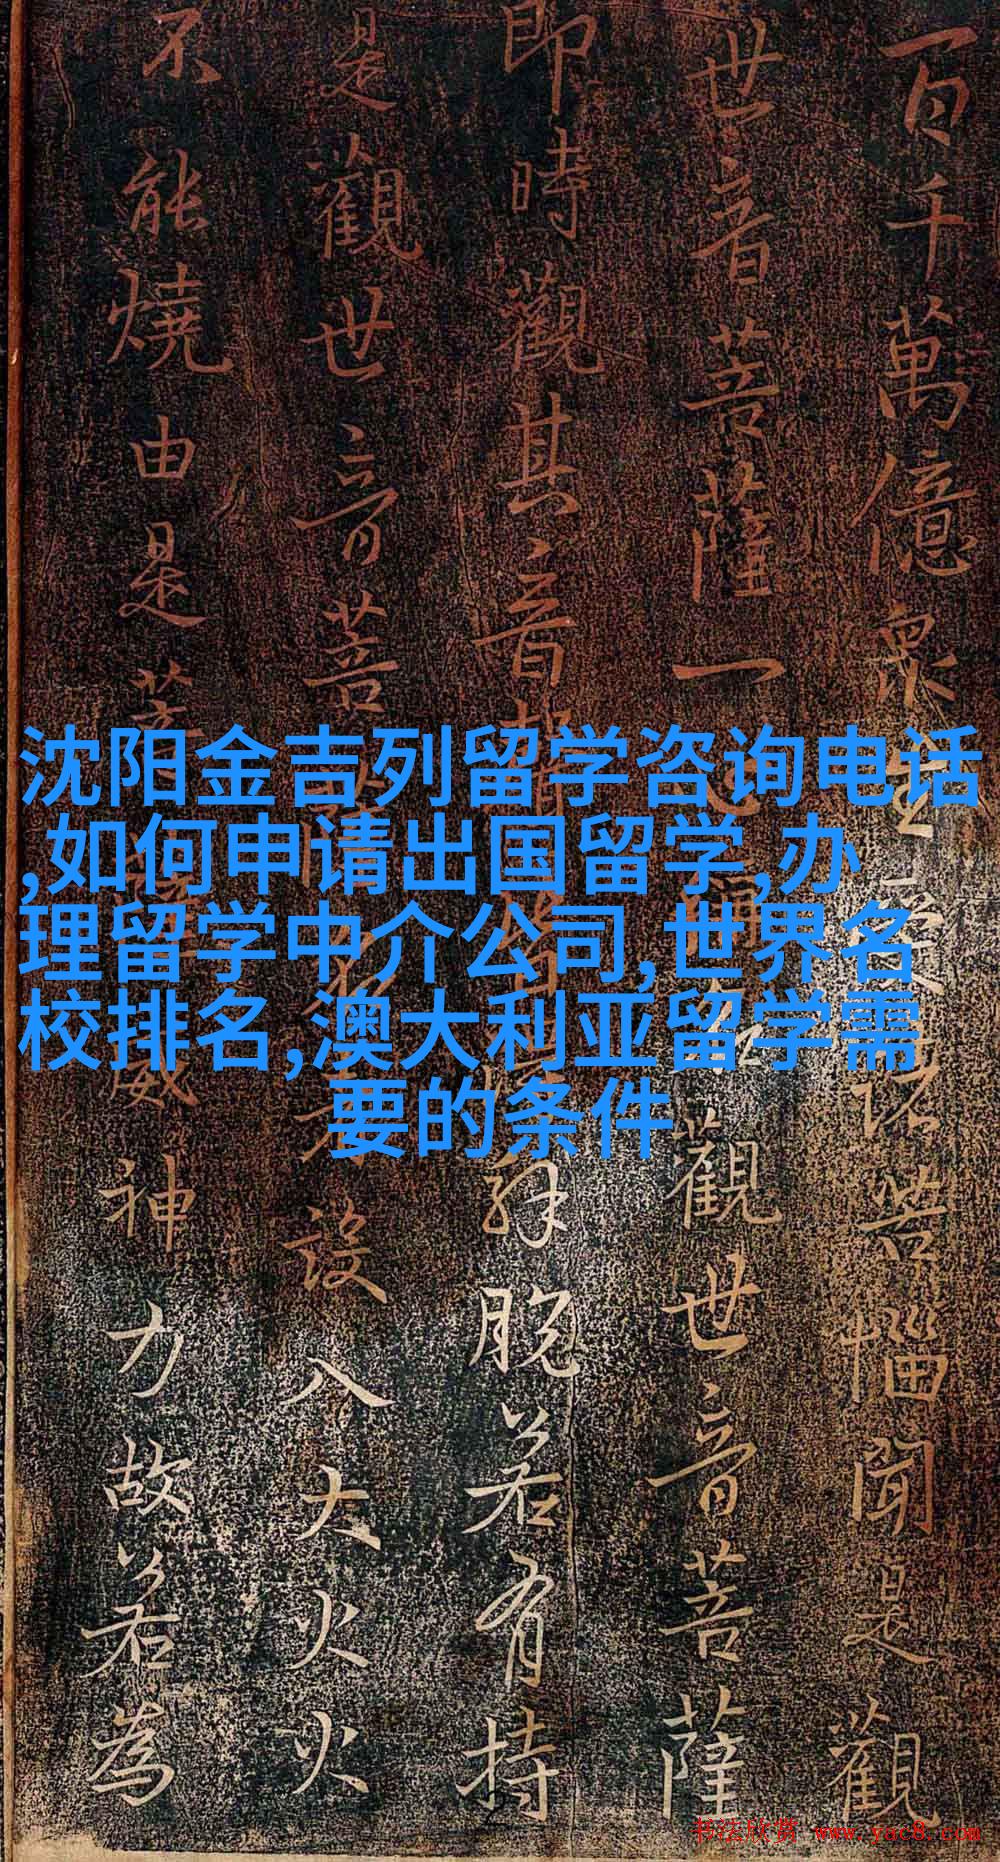 百千萬億眾生受諸苦惱聞是觀
世音菩薩一心稱名觀世音菩薩
即時觀其音聲皆解脫若有持
是觀世音菩者設入大火火
不能燒由是菩威神力故若為
沈阳金吉列留学咨询电话
,如何申请出国留学,办
理留学中介公司,世界名
校排名,澳大利亚留学需
要的条件
书法欣赏 www.yac8.com